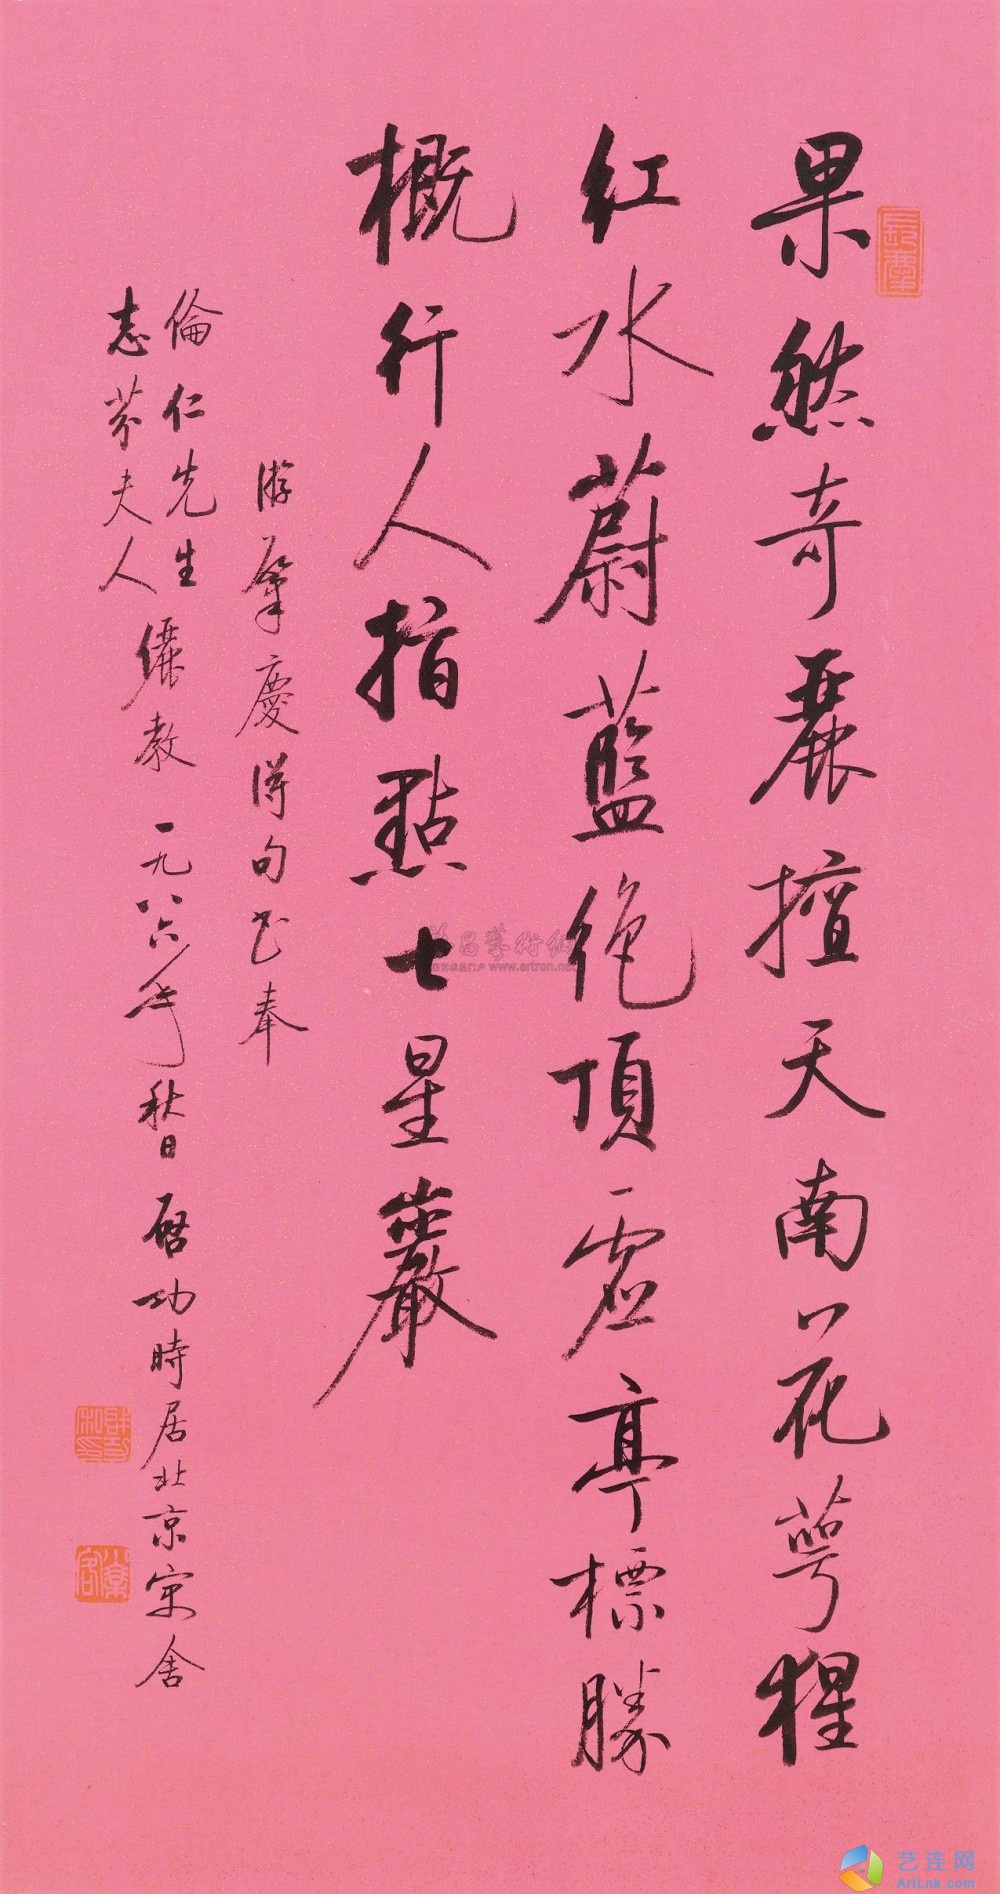 果然奇麗擅天南花萼猩
紅水蔚藍絕頂虛亭標勝
概行人指點七星巖
游肇慶得句書奉
倫仁先生
志芬夫人
儷教 一九八六年秋日 啓功時居北京寓舍
www.artron.net
艺连网
ArtLnk.com